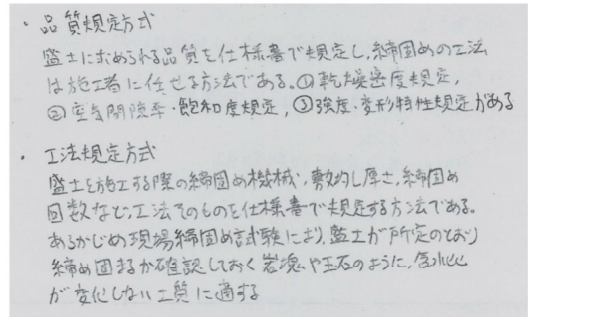 ・品質規定方式
盛土に求められる品質を仕様書で規定し、締固めの工法
は施工者に任せる方法である。①乾燥密度規定,
②空気間隙率・飽和度規定, ③強度・変形特性規定がある
・工法規定方式
盛土を施工する際の締固め機械, 敷均し厚さ, 締固め
回数など, 工法そのものを仕様書で規定する方法である。
あらかじめ現場締固め試験により, 盛土が所定のとおり
締め固まるか確認しておく 岩塊や玉石のように, 含水比
が変化しない土質に適する